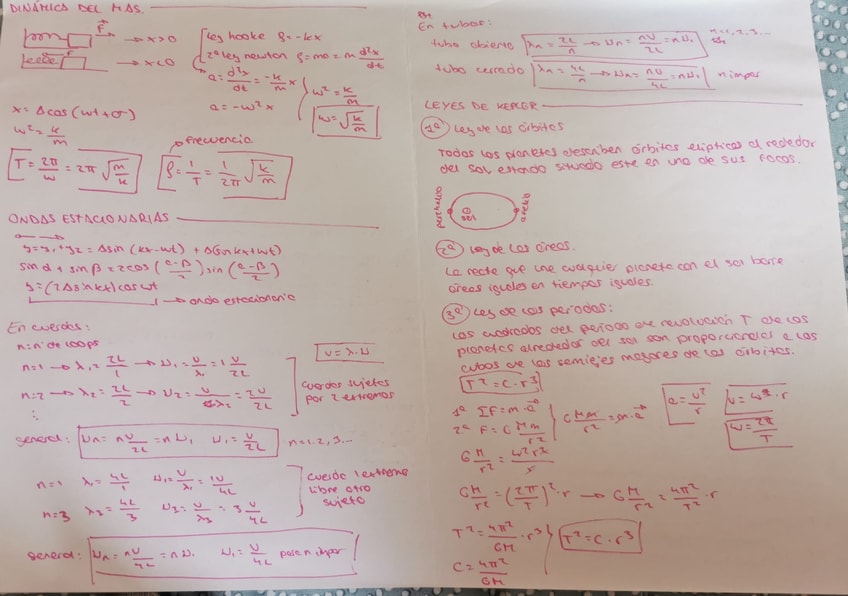 DINÁMICA DEL MAS.
F
→ x>0
→ x<0
Ley hooke F = -kx
2ª Ley newton F = ma = m d²x/dt
a = d²x/dt = -k/m x
a = -ω² x
ω² = k/m
ω = √k/m
x = A cos (ωt + σ)
ω² = k/m
T = 2π/ω = 2π √m/k
frecuencia
f = 1/T = 1/2π √k/m
ONDAS ESTACIONARIAS
y = y₁ + y₂ = A sin (kx - ωt) + A (sin kx + ωt)
sin α + sin β = 2 cos (α-β/2) sin (α-β/2)
y = (2A sin kx) cos ωt
→ onda estacionaria
En cuerdas:
n = nº de loops
v = λ·ν
n=1 → λ₁ = 2L/1 → ν₁ = v/λ = 1 v/2L
n=2 → λ₂ = 2L/2 → ν₂ = v/λ₂ = 2v/2L
⋮
cuerdas sujetas
por 2 extremos
general: νn = nv/2L = n ν₁ ν₁ = v/2L n=1, 2, 3...
n=1 λ₁ = 4L/1 ν₁ = v/λ₁ = 1v/4L
n=3 λ₃ = 4L/3 ν₃ = v/λ₃ = 3 v/4L
cuerda 1 extremo
libre otro
sujeto
general: νn = nv/4L = n ν₁ ν₁ = v/4L para n impar
En tubos:
tubo abierto λn = 2L/n → νn = nv/2L = nν₁ n=1, 2, 3...
tubo cerrado λn = 4L/n → νn = nv/4L = nν₁ n impar
LEYES DE KEPLER
1ª Ley de las órbitas
Todos los planetas describen órbitas elípticas al rededor
del sol estando situado este en uno de sus focos.
perihelio
sol
afelio
2ª Ley de las áreas.
La recta que une cualquier planeta con el sol barre
áreas iguales en tiempos iguales.
3ª Ley de los períodos:
Los cuadrados del período de revolución T de los
planetas alrededor del sol son proporcionales a los
cubos de los semiejes mayores de las órbitas.
T² = C·r³
1ª ΣF = m·a
2ª F = G Mm/r²
G Mm/r² = m·a
a = v²/r
v = ω·r
ω = 2π/T
G M/r² = ω²r²/r
GM/r² = (2π/T)²·r → G M/r² = 4π²/T²·r
T² = 4π²/GM·r³
T² = C·r³
C = 4π²/GM